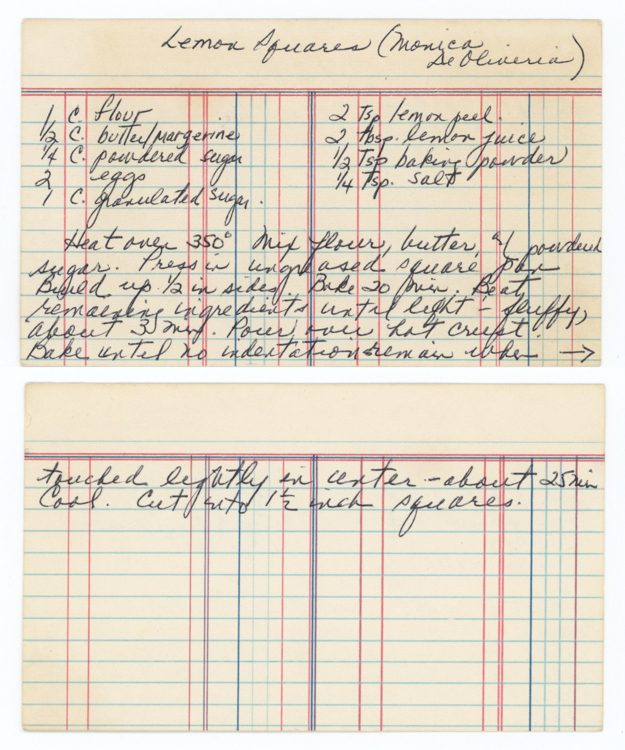 Lemon Squares (Monica
DeOliveria)
1 C. flour
1/2 C. butter/margerine
1/4 C. powdered sugar
2 eggs
1 C. granulated sugar.
2 Tsp lemon peel.
2 Tbsp. lemon juice
1/2 Tsp baking powder
1/4 Tsp. salt
Heat oven 350° Mix flour, butter, w/ powdered
sugar. Press in ungreased square pan
Build up 1/2 in sides. Bake 20 min. Beat
remaining ingredients until light - fluffy,
about 3 min. Pour over hot crust.
Bake until no indentations remain when →
touched lightly in center - about 25 min
Cool. Cut into 1 1/2 inch squares.